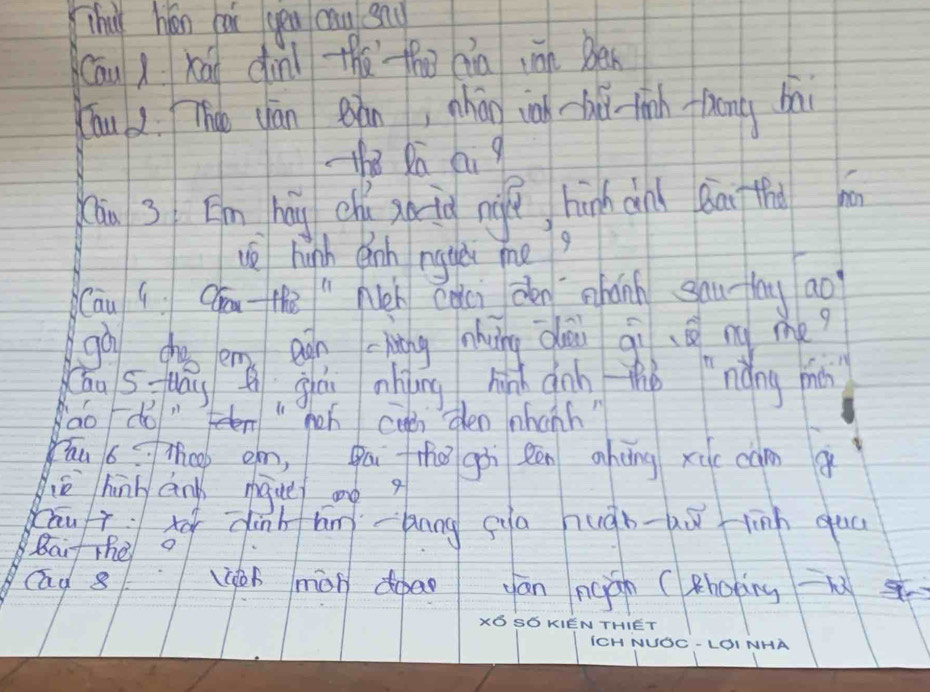 Thực hiện các yêu cầu sau
Câu 1. Xác định thể thơ của văn bản
Câu 2. Theo văn bản, nhân vật trữ tình trong bài
thơ là ai?
Câu 3: Em hãy chỉ ra từ ngữ, hình ảnh bài thơ nói
về hình ảnh người mẹ?
Câu 4. Câu thơ "Nét cười đen nhánh sau tay áo"
gợi cho em những điều gì về ng mẹ?
Câu 5 giải những hình ảnh thơ "nắng mới"
"áo đỏ" "nét cười đen nhánh"
Câu 6: Theo em, bài thơ gợi lên những xúc cảm gì
về hình ảnh người mẹ?
Câu 7: xác định tâm trạng của nhân vật trữ tình qua
Bài thơ?
Câu 8 Viết một đoạn văn ngắn (khoảng từ
XỔ SỐ KIẾN THIẾT
ÍCH NƯỚC - LỢI NHÀ